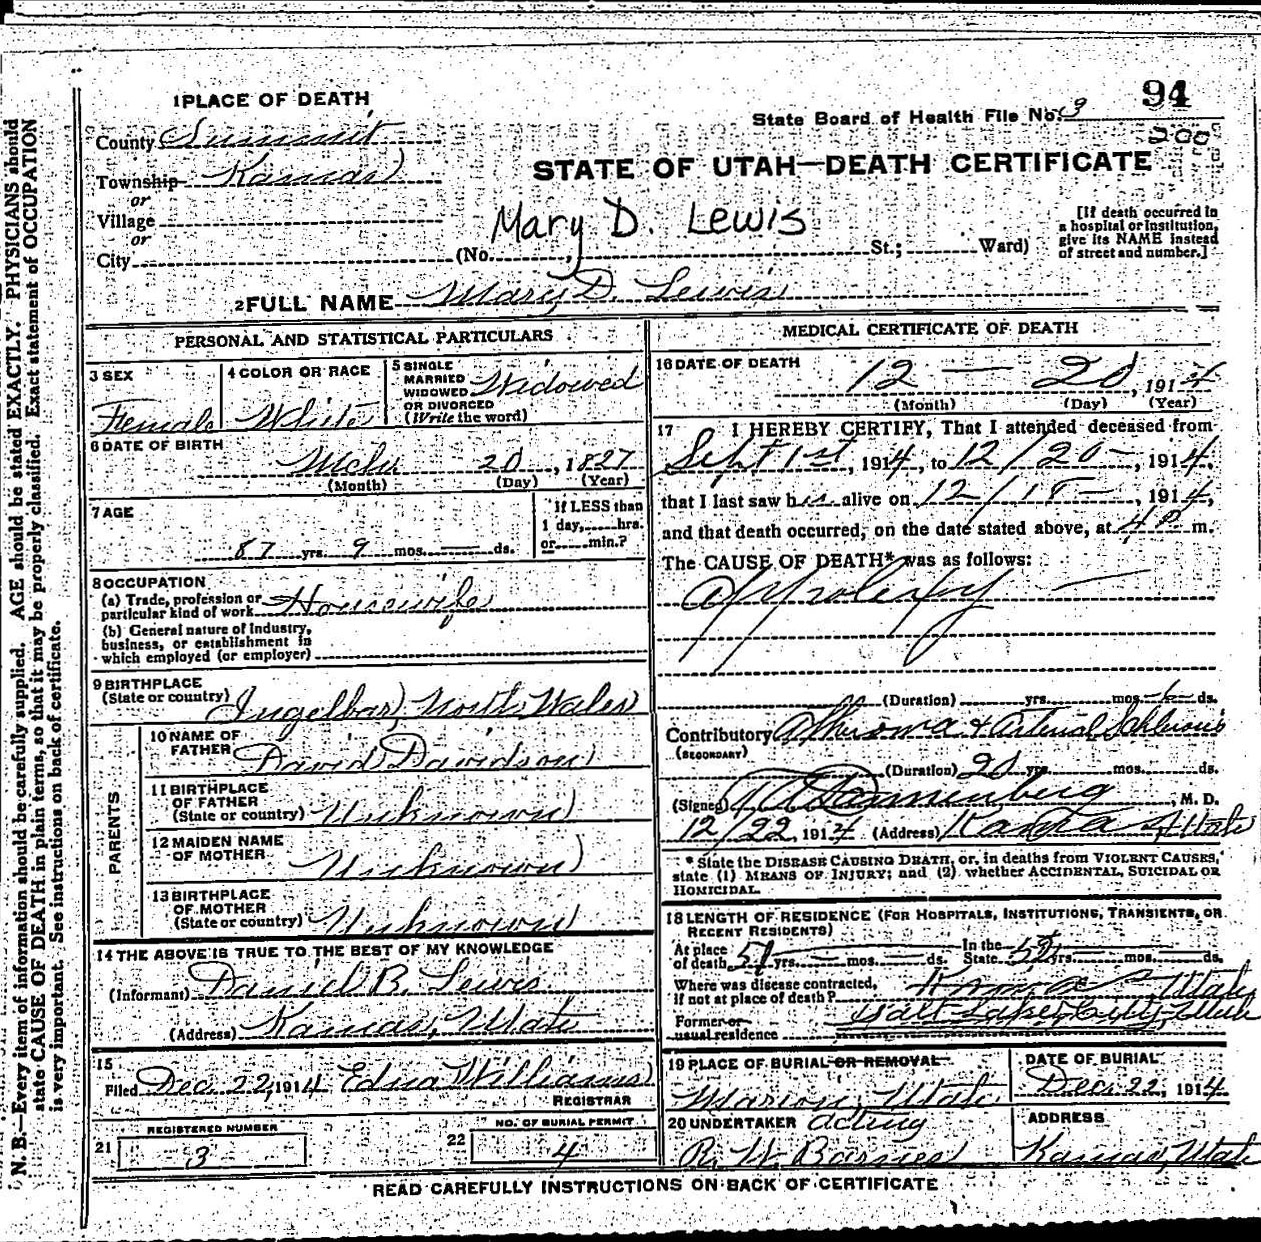 94
1 PLACE OF DEATH
State Board of Health File No. 3
200
County Summit
STATE OF UTAH—DEATH CERTIFICATE
Township Kamas
or
Village
or
City
Mary D. Lewis
(No. , St.; Ward)
[If death occurred in
a hospital or institution,
give its NAME instead
of street and number.]
2 FULL NAME Mary D. Lewis
PERSONAL AND STATISTICAL PARTICULARS
3 SEX
Female
4 COLOR OR RACE
White
5 SINGLE
MARRIED
WIDOWED
OR DIVORCED
(Write the word)
Widowed
6 DATE OF BIRTH
Mch 20, 1827
(Month) (Day) (Year)
7 AGE
87 yrs. 9 mos. — ds.
If LESS than
1 day, hrs.
or min.?
8 OCCUPATION
(a) Trade, profession or
particular kind of work Housewife
(b) General nature of Industry,
business, or establishment in
which employed (or employer)
9 BIRTHPLACE
(State or country) North Wales
PARENTS
10 NAME OF
FATHER
David Davidson
11 BIRTHPLACE
OF FATHER
(State or country) Unknown
12 MAIDEN NAME
OF MOTHER
Unknown
13 BIRTHPLACE
OF MOTHER
(State or country) Unknown
14 THE ABOVE IS TRUE TO THE BEST OF MY KNOWLEDGE
(Informant) Daniel B. Lewis
(Address) Kamas, Utah
15
Filed Dec 22, 1914 Edna Williams
REGISTRAR
21 REGISTERED NUMBER
3
22 NO. OF BURIAL PERMIT
4
MEDICAL CERTIFICATE OF DEATH
16 DATE OF DEATH
12 — 20, 1914
(Month) (Day) (Year)
17 I HEREBY CERTIFY, That I attended deceased from
Sept 1st, 1914, to 12/20—, 1914,
that I last saw h alive on 12/18—, 1914,
and that death occurred, on the date stated above, at 4 P m.
The CAUSE OF DEATH* was as follows:
Appolexy —
(Duration) yrs. mos. ds.
Contributory Atheroma & Arterial Schlerosis
(SECONDARY)
(Duration) 20 yrs. mos. ds.
(Signed) Dannenberg, M. D.
12/22, 1914 (Address) Kamas Utah
* State the DISEASE CAUSING DEATH, or, in deaths from VIOLENT CAUSES,
state (1) MEANS OF INJURY; and (2) whether ACCIDENTAL, SUICIDAL OR
HOMICIDAL.
18 LENGTH OF RESIDENCE (FOR HOSPITALS, INSTITUTIONS, TRANSIENTS, OR
RECENT RESIDENTS)
At place
of death yrs. — mos. — ds.
In the
State yrs. — mos. — ds.
Where was disease contracted,
if not at place of death? Kamas Utah
Former or
usual residence Salt Lake City, Utah
19 PLACE OF BURIAL OR REMOVAL
Marion, Utah
DATE OF BURIAL
Dec 22, 1914
20 UNDERTAKER Acting
R. W. Barnes
ADDRESS
Kamas, Utah
READ CAREFULLY INSTRUCTIONS ON BACK OF CERTIFICATE
N. B.—Every item of information should be carefully supplied. AGE should be stated EXACTLY. PHYSICIANS should
state CAUSE OF DEATH in plain terms, so that it may be properly classified. Exact statement of OCCUPATION
is very important. See instructions on back of certificate.